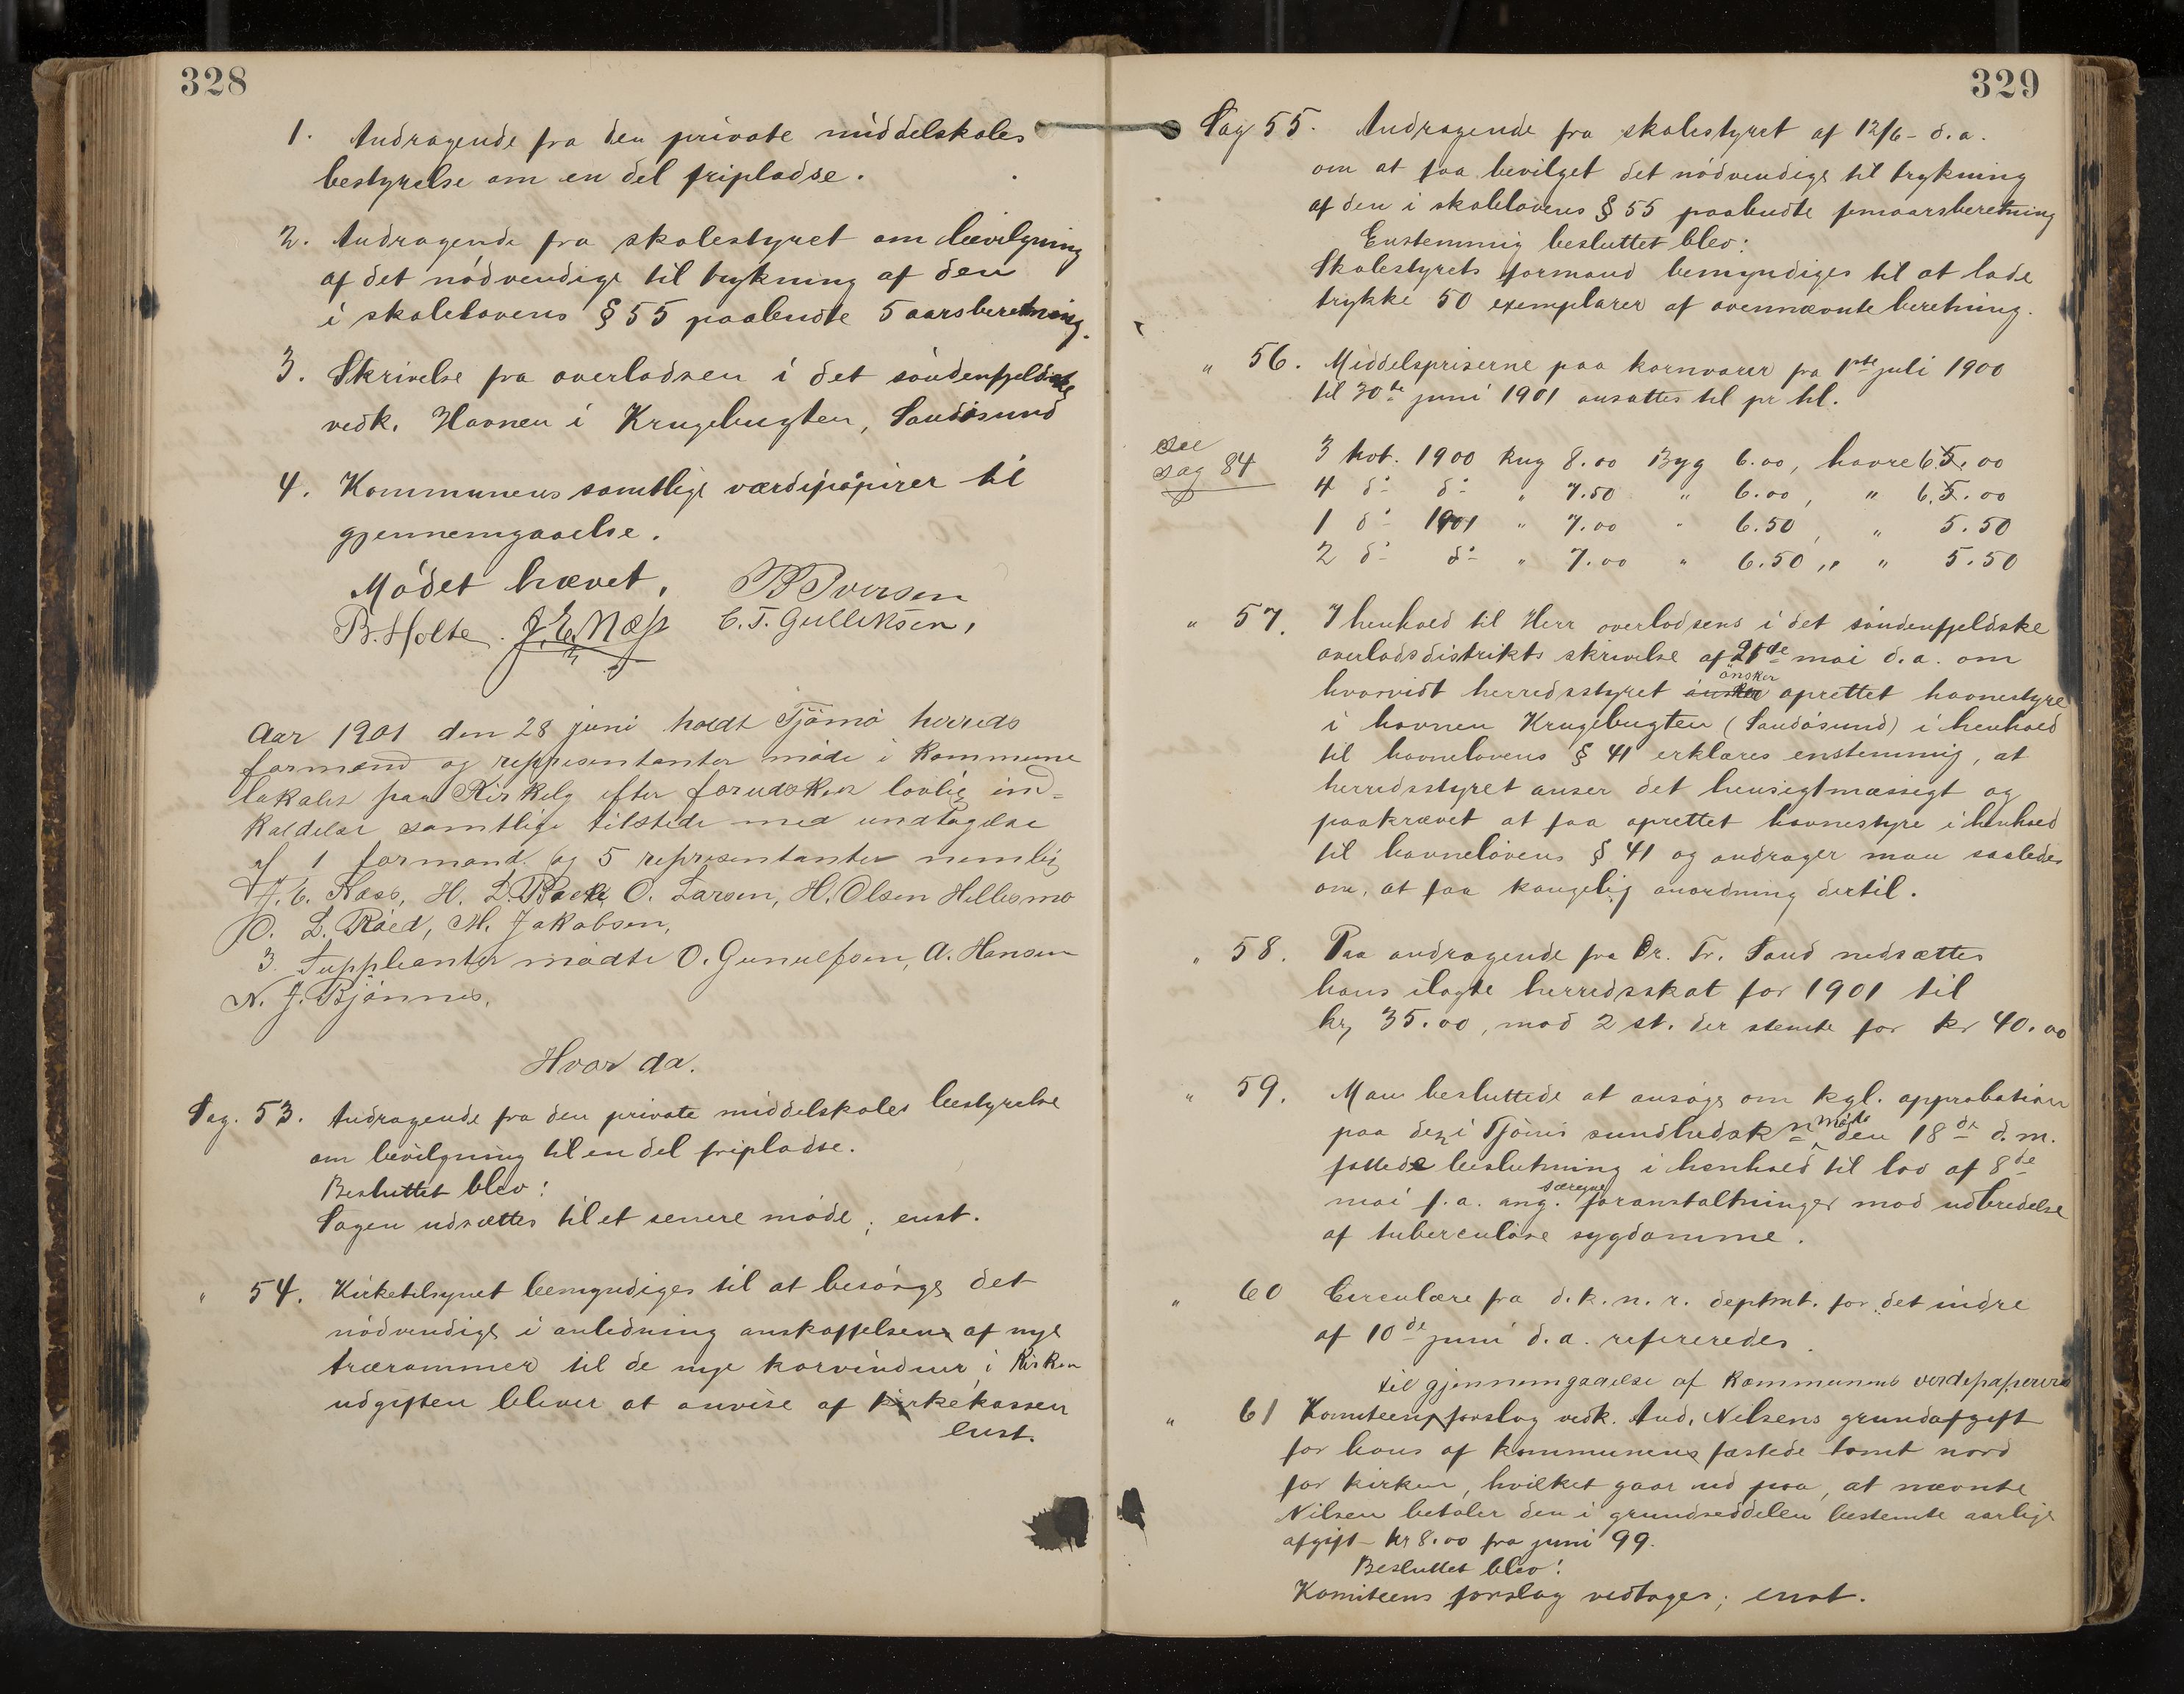 328
1. Andragende fra den private middelskoles
bestyrelse om en del fripladse.
2. Andragende fra skolestyret om bevilgning
af det nödvendige til trykning af den
i skolelovens § 55 paabudte 5 aarsberetning.
3. Skrivelse fra overlodsen i det söndenfjeldske
vedk. Havnen i Krugebugten, Sandösund
4. Kommunens samtlige værdipapirer til
gjennemgaaelse.
Mödet hævet.
B Iversen
B. Holte. J. E. Næss C. T. Gulliksen,
Aar 1901 den 28 juni holdt Tjömö herreds
formend og representanter möde i kommune
lokalet paa Kirkelg efter forudsken lovlig ind-
kaldelse samtlige tilstede med undtagelse
af 1 formand og 5 representanter nemlig
J. C. Næss, H. L. Bache, O. Larsen, H. Olsen Hellesmo
O. L. Röed, M. Jakobsen,
3. Suppleanter mödte O. Gunulfsen, A. Hansen
N. J. Bjönnes,
Hvor da.
Sag. 53. Andragende fra den private middelskoles bestyrelse
om bevilgning til en del fripladse.
Besluttet blev:
Sagen udsættes til et senere möde; enst.
" 54. Kirketilsynet bemyndiges til at besörge det
nödvendige i anledning anskaffelsen af nye
trærammer til de nye korvinduer i kirken
udgiften bliver at anvise af kirkekassen
enst.
329
Sag 55. Andragende fra skolestyret af 12/6 - d.a.
om at faa bevilget det nödvendige til trykning
af den i skolelovens § 55 paabudte femaarsberetning
Enstemmig besluttet blev:
Skolestyrets formand bemyndiges til at lade
trykke 50 exemplarer af ovennævnte beretning.
" 56. Middelpriserne paa kornvarer fra 1ste juli 1900
til 30te juni 1901 ansattes til pr hl.
See
Sag 84
3 kvt. 1900 Rug 8.00 Byg 6.00, havre 6.5.00
4 do do " 7.50 " 6.00, " 6.5.00
1 do 1901 " 7.00 " 6.50, " 5.50
2 do do " 7.00 " 6.50,, " 5.50
" 57. I henhold til Herr overlodsens i det söndenfjeldske
overlodsdistrikts skrivelse af 21de mai d.a. om
önsker
hvorvidt herredsstyret önsker oprettet havnestyre
i havnen Krugebugten (Sandösund) i henhold
til havnelovens § 41 erklæres enstemmig, at
herredsstyret anser det hensigtmæssigt og
paakrævet at faa oprettet havnestyre i henhold
til havnelovens § 41 og andrager man saaledes
om, at faa kongelig anordning dertil.
" 58. Paa andragende fra Dr. Fr. Sand nedsættes
hans ilagte herredsskat for 1901 til
kr, 35.00, mod 2 st. der stemte for kr 40.00
" 59. Man besluttede at ansöge om kgl. approbation
möde
paa den i Tjömö sundhedsk n den 18de d.m.
fattede beslutning i henhold til lov af 8de
særegne
mai f.a. ang. foranstaltninger mod udbredelse
af tuberculöse sygdomme.
" 60 Circulære fra d.k.n.r. deptmt. for det indre
af 10de juni d.a. refereredes.
til gjennemgaaelse af kommunens verdipaperer
" 61 Komiteens forslag vedk. And. Nilsens grundafgift
for hans af kommunens fæstede tomt nord
for kirken, hvilket gaar ud paa, at nævnte
Nilsen betaler den i grundseddelen bestemte aarlige
afgift - kr 8.00 fra juni 99.
Besluttet blev:
Komiteens forslag vedtages; enst.